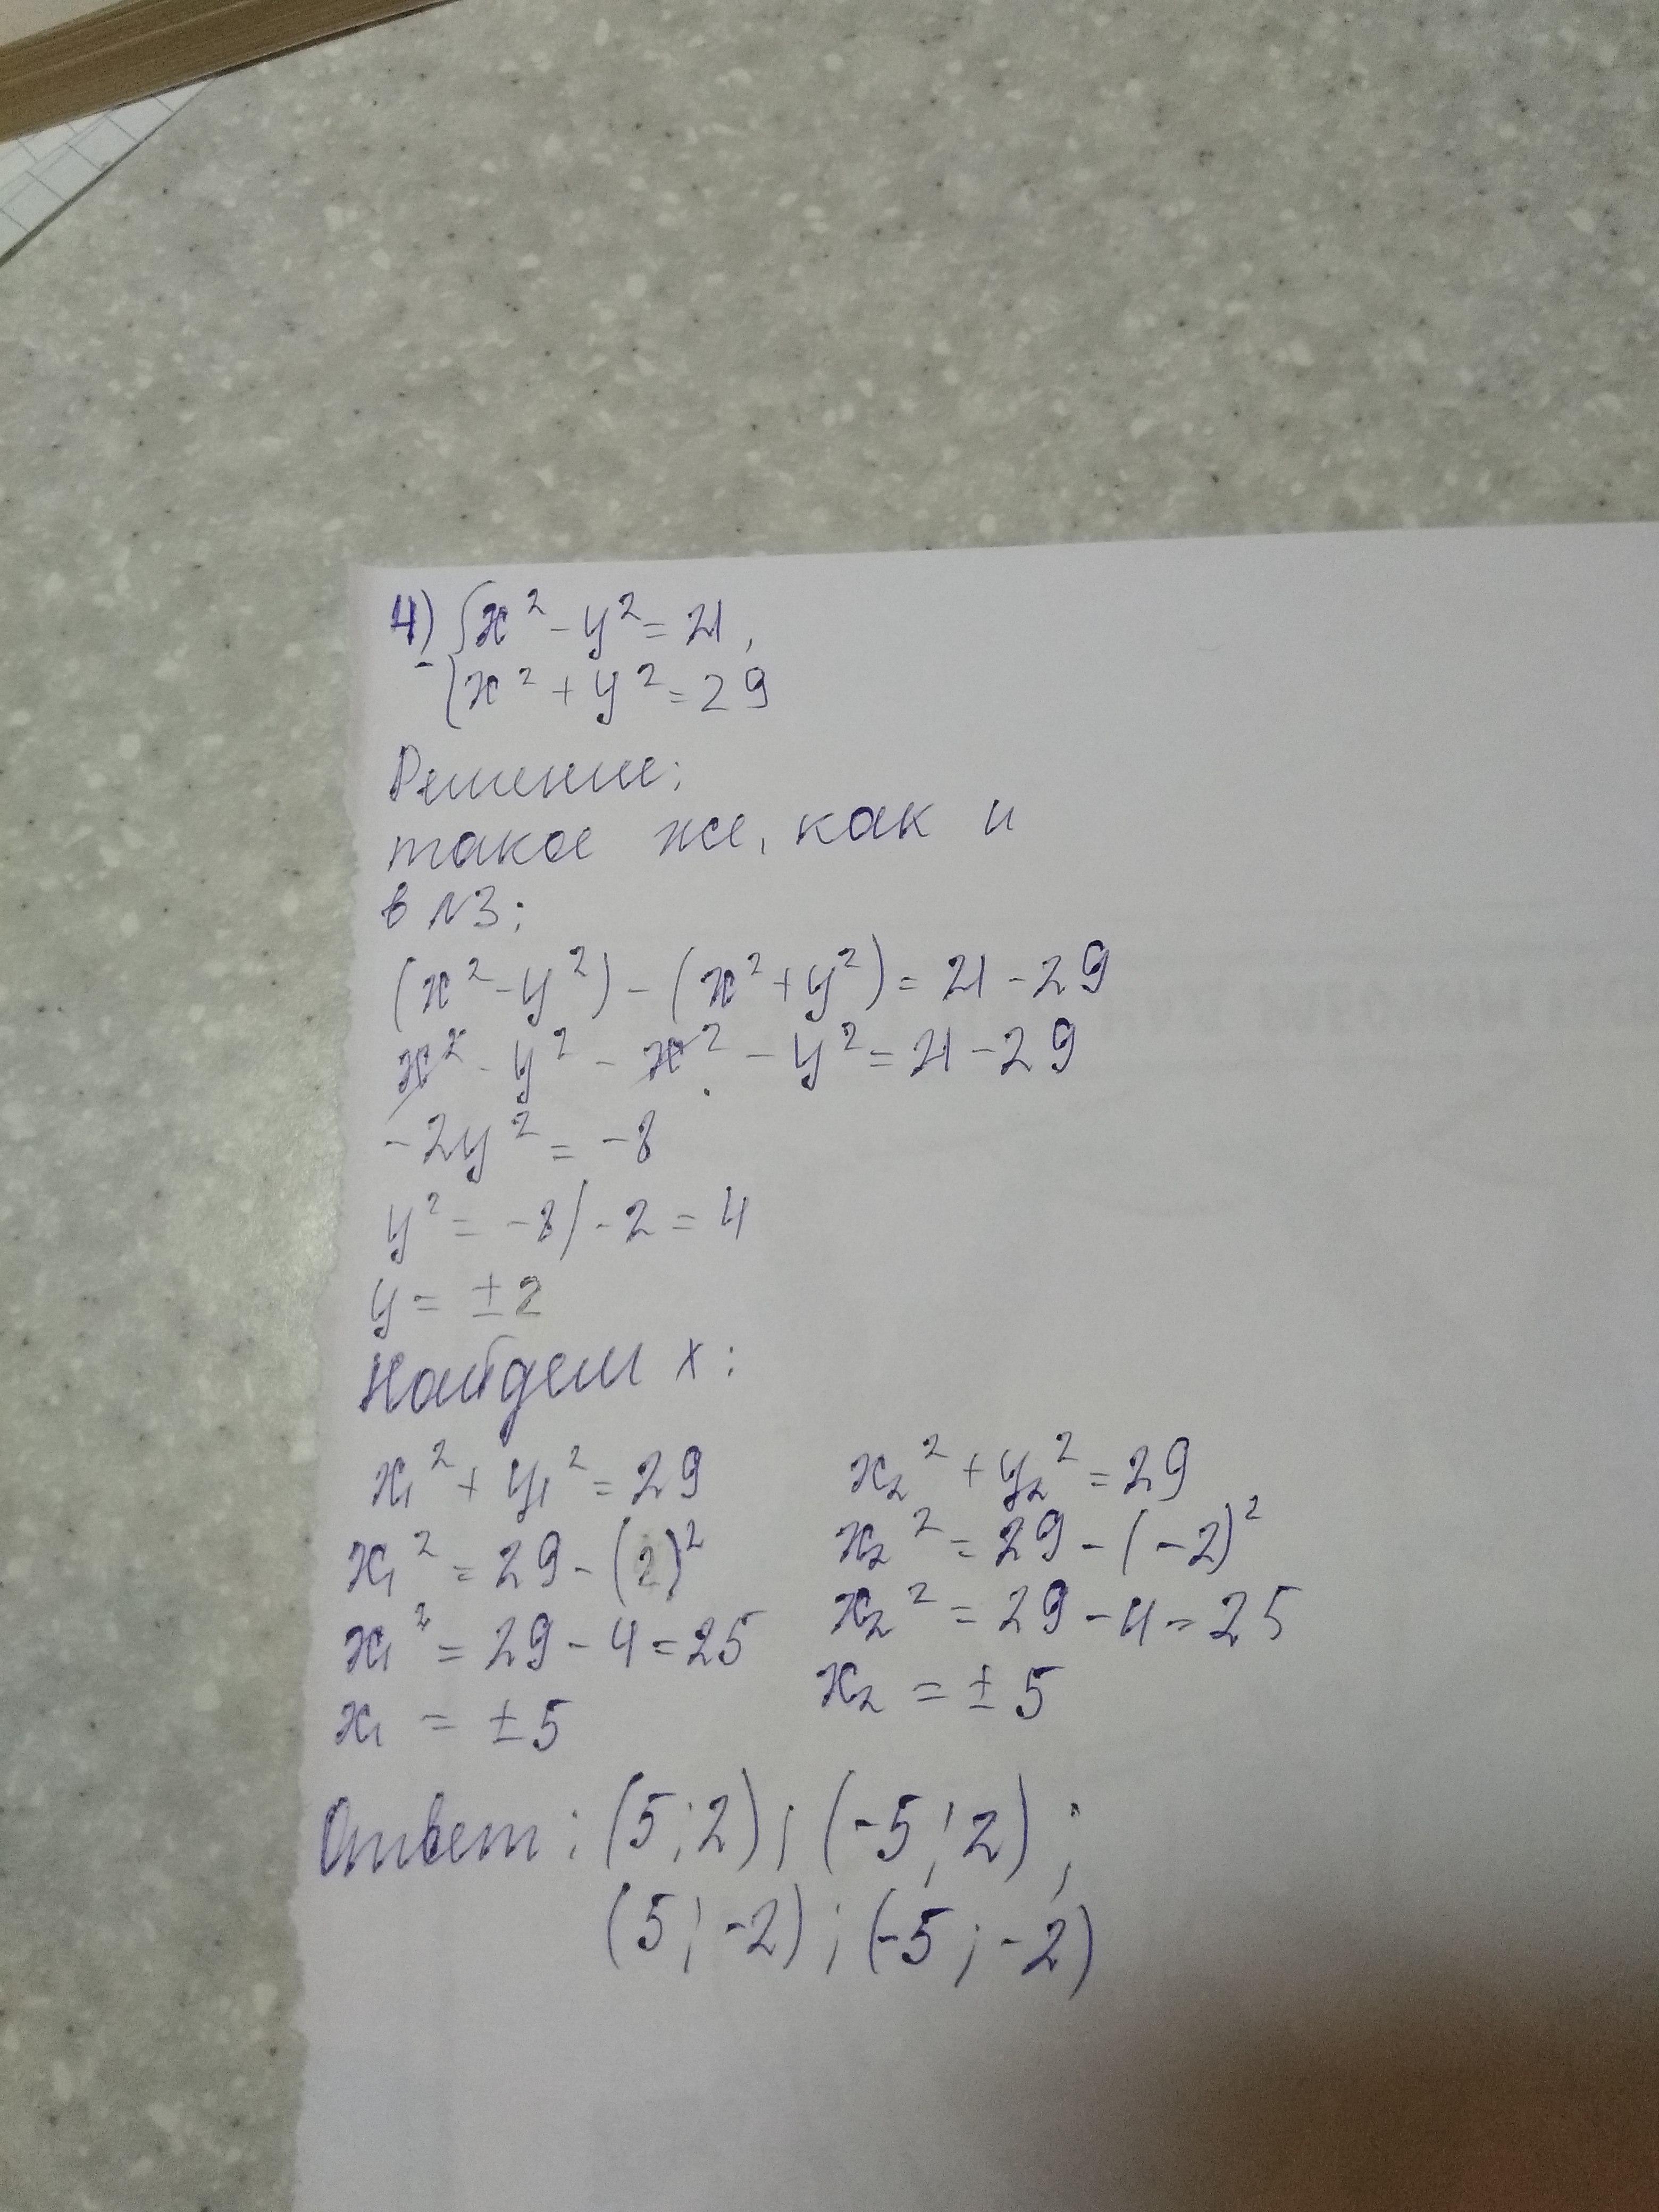 4) { x² - y² = 21,
- { x² + y² = 29
Решение:
такое же, как и
в №3:
(x² - y²) - (x² + y²) = 21 - 29
x² - y² - x² - y² = 21 - 29
-2y² = -8
y² = -8/-2 = 4
y = ±2
Найдем x:
x₁² + y₁² = 29
x₁² = 29 - (2)²
x₁² = 29 - 4 = 25
x₁ = ±5
x₂² + y₂² = 29
x₂² = 29 - (-2)²
x₂² = 29 - 4 = 25
x₂ = ±5
Ответ: (5;2); (-5;2);
(5;-2); (-5;-2)